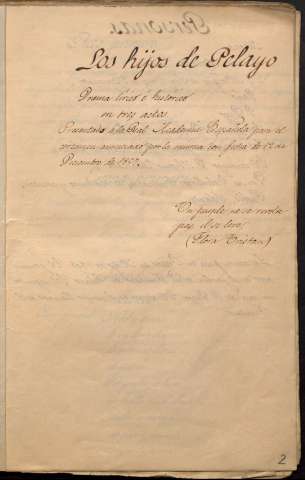 Los hijos de Pelayo
Drama lírico é histórico
en tres actos
Presentado á la Real Academia Española para el
certamen anunciado por la misma con fecha de 12 de
Diciembre de
Un pueblo no se revela
pas, il se leve!
(Flora Tristan)
2